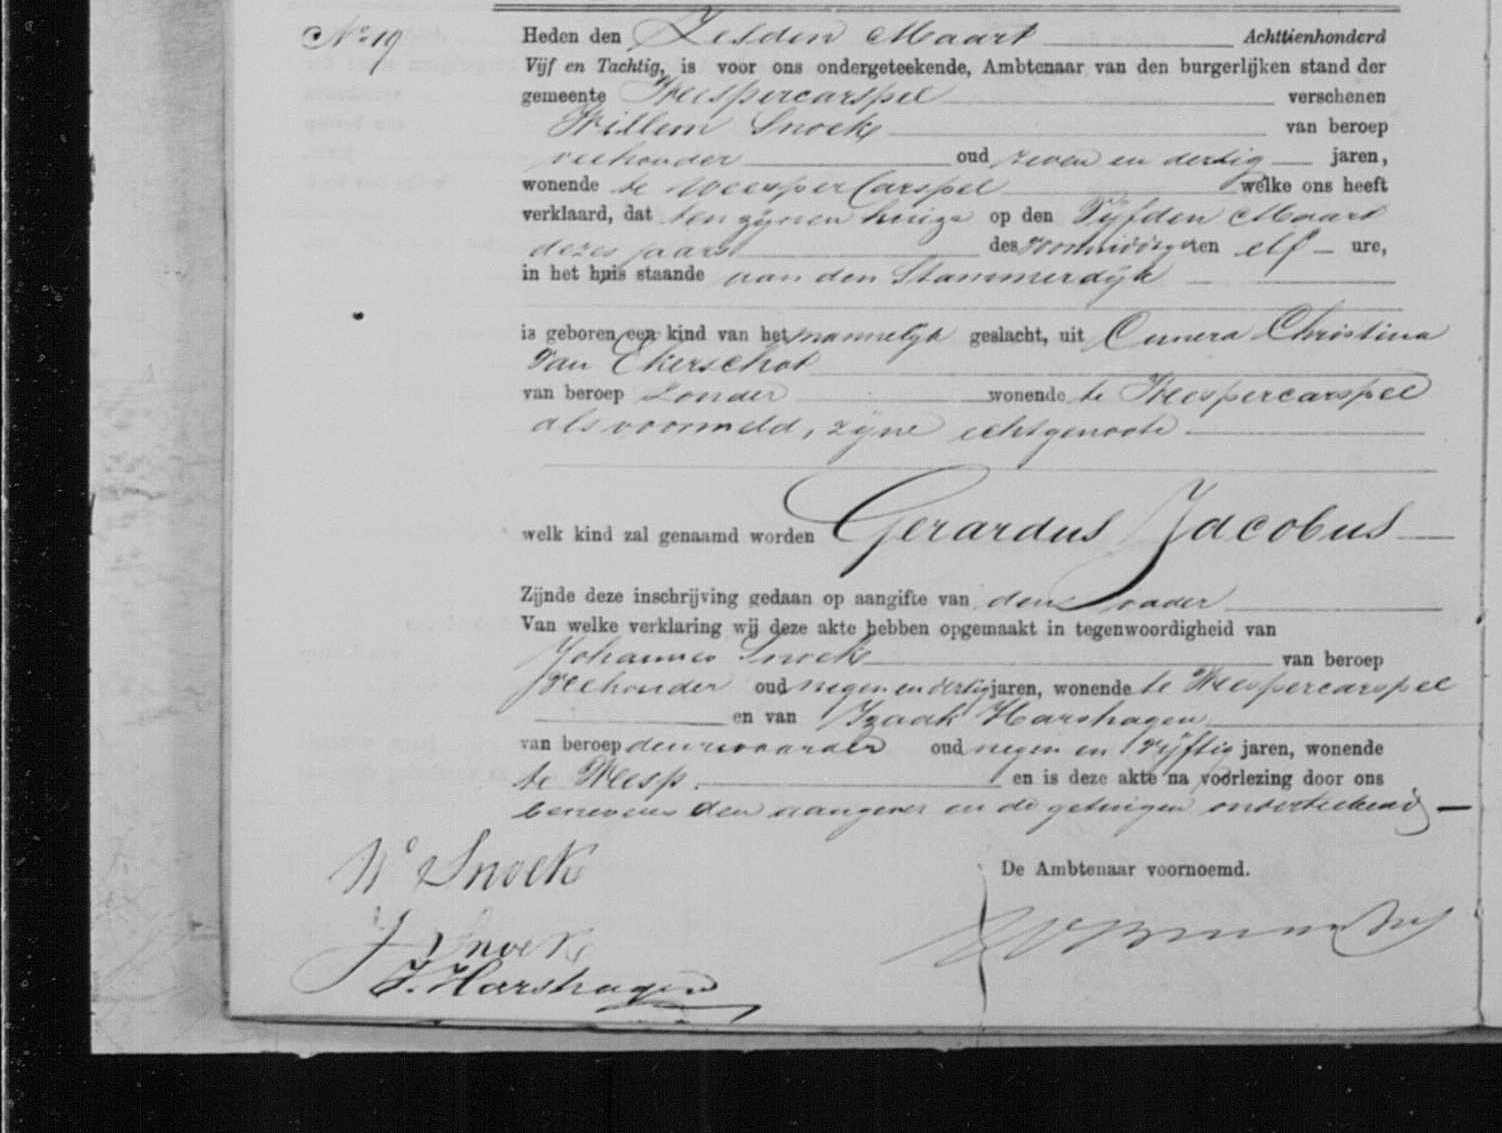 No 19
Heden den Zesden Maart Achttienhonderd
Vijf en Tachtig, is voor ons ondergeteekende, Ambtenaar van den burgerlijken stand der
gemeente Weespercarspel verschenen
Willem Snoek van beroep
veehouder oud zeven en dertig jaren,
wonende te Weesper Carspel welke ons heeft
verklaard, dat ten zijnen huize op den Vijfden Maart
dezes jaars des voormiddags ten elf ure,
in het huis staande aan den Stammerdijk
is geboren een kind van het mannelijk geslacht, uit Cunera Christina
van Ekerschot
van beroep zonder wonende te Weespercarspel
als voormeld, zijne echtgenoote
welk kind zal genaamd worden Gerardus Jacobus
Zijnde deze inschrijving gedaan op aangifte van den vader
Van welke verklaring wij deze akte hebben opgemaakt in tegenwoordigheid van
Johannes Snoek van beroep
veehouder oud negen en dertig jaren, wonende te Weespercarspel
en van Izaak Harshagen
van beroep deurwaarder oud negen en vijftig jaren, wonende
te Weesp. en is deze akte na voorlezing door ons
benevens den aangever en de getuigen onderteekend
W Snoek
De Ambtenaar voornoemd.
J Snoek
I. Harshagen